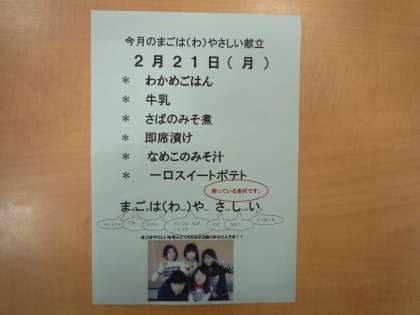 今月のまごは(わ)やさしい献立
2月21日(月)
* わかめごはん
* 牛乳
* さばのみそ煮
* 即席漬け
* なめこのみそ汁
* 一口スイートポテト
使っている食材です。
ま…ご…は(わ)…や… さ…し…い…